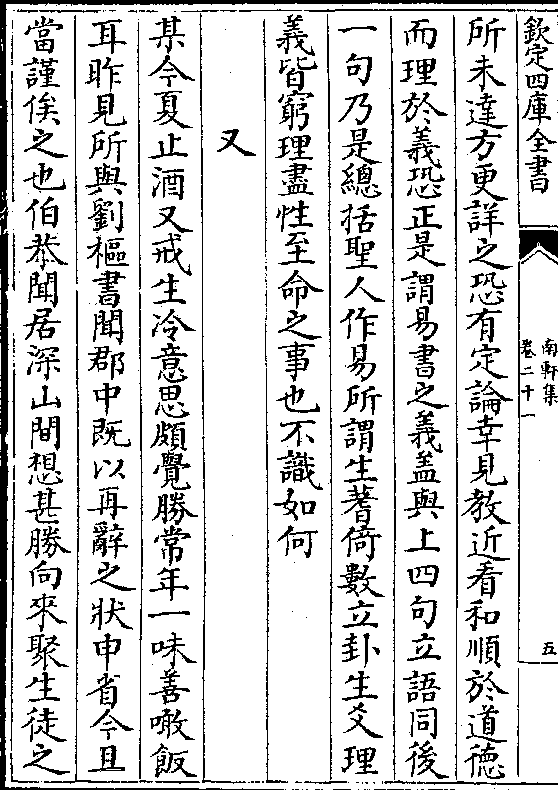 欽定四庫全書
南軒集
卷二十一
五
所未達方更詳之恐有定論幸見教近看和順於道德
而理於義恐正是謂易書之義蓋與上四句立語同後
一句乃是總括聖人作易所謂生蓍倚數立卦生爻理
義皆窮理盡性至命之事也不識如何
又
某今夏止酒又戒生冷意思頗覺勝常年一味善噉飯
耳昨見所與劉樞書聞郡中既以再辭之狀申省今且
當謹俟之也伯恭聞居深山間想甚勝向來聚生徒之